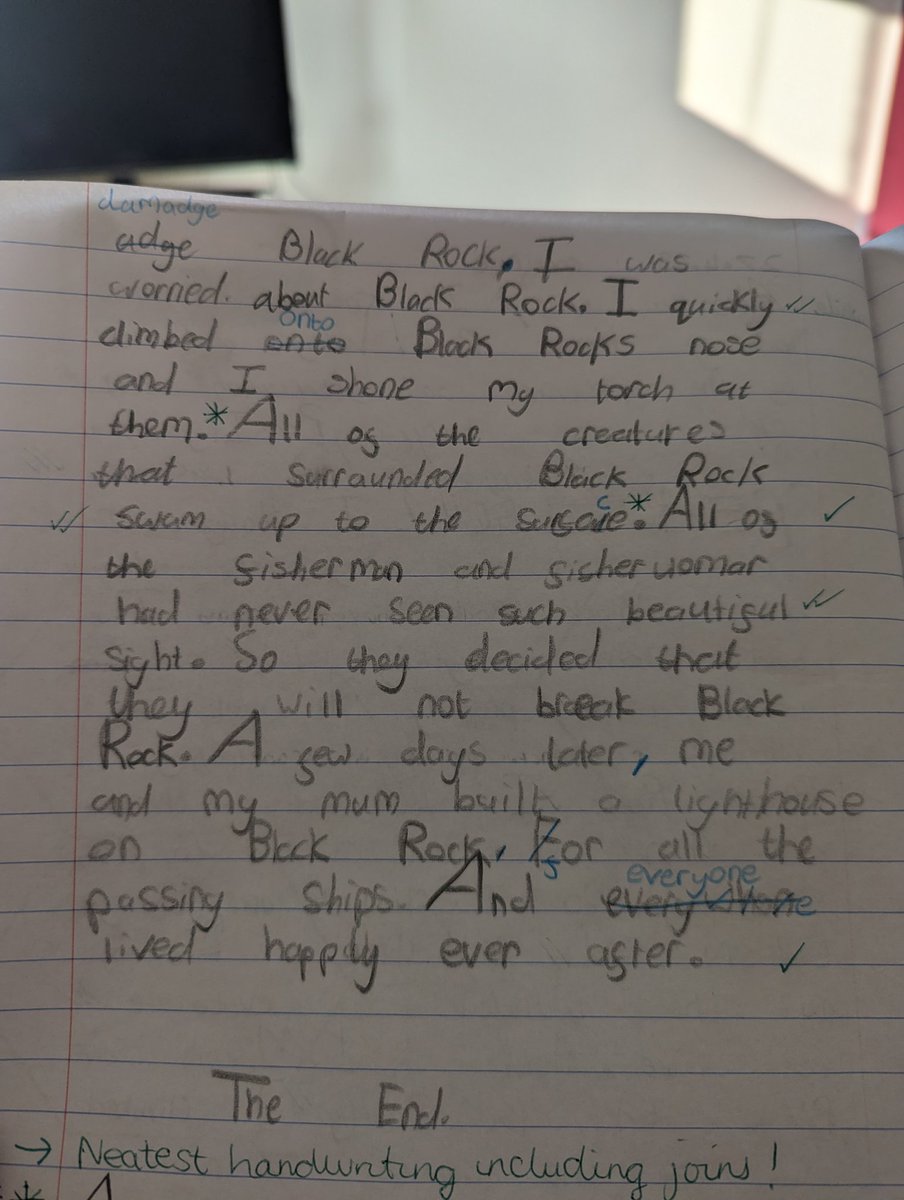 damadge
adge Black Rock. I was
worried. about Black Rock. I quickly
onto
climbed onto Black Rocks nose
and I shone my torch at
them.* All of the creatures
that surraunded Black Rock
c *
swam up to the surfaie. All of
the fisherman and fisherwoman
had never seen such beautiful
sight. So they decided that
they will not break Black
Rock. A few days later, me
and my mum built a lighthouse
on Black Rock, For all the
f
everyone
passing ships. And every
lived happily ever after.
The End.
→ Neatest handwriting including joins!